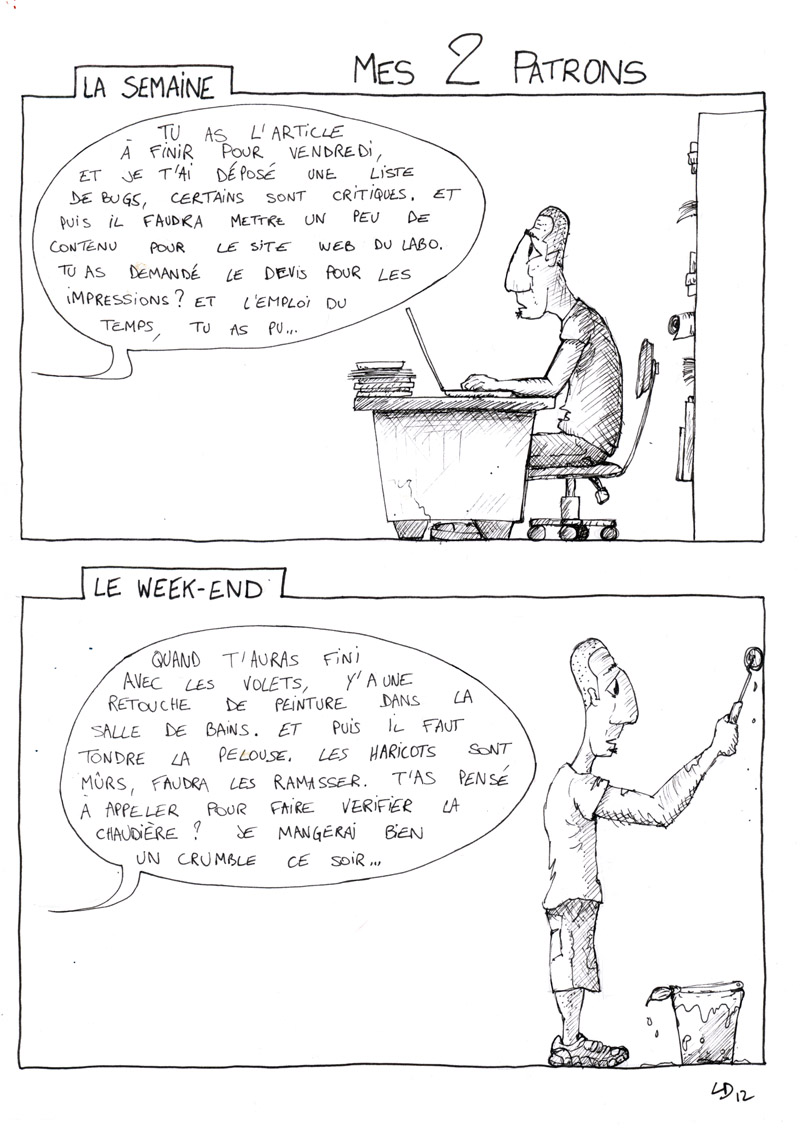 MES 2 PATRONS
LA SEMAINE
TU AS L'ARTICLE
À FINIR POUR VENDREDI,
ET JE T'AI DÉPOSÉ UNE LISTE
DE BUGS, CERTAINS SONT CRITIQUES. ET
PUIS IL FAUDRA METTRE UN PEU DE
CONTENU POUR LE SITE WEB DU LABO.
TU AS DEMANDÉ LE DEVIS POUR LES
IMPRESSIONS? ET L'EMPLOI DU
TEMPS, TU AS PU...
LE WEEK-END
QUAND T'AURAS FINI
AVEC LES VOLETS, Y'A UNE
RETOUCHE DE PEINTURE DANS LA
SALLE DE BAINS. ET PUIS IL FAUT
TONDRE LA PELOUSE. LES HARICOTS SONT
MÛRS, FAUDRA LES RAMASSER. T'AS PENSÉ
À APPELER POUR FAIRE VERIFIER LA
CHAUDIÈRE? JE MANGERAI BIEN
UN CRUMBLE CE SOIR...
LD12